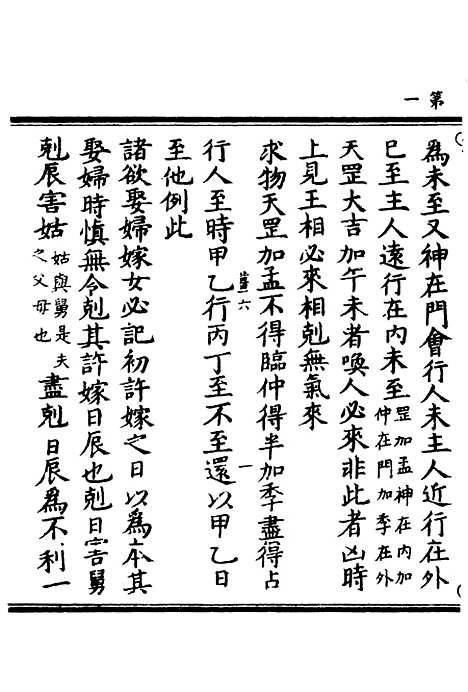 第一
爲未至又神在門會行人未主人近行在外
巳至主人遠行在内未至罡加孟神在内加仲在門加季在外
天罡大吉加午未者喚人必來非此者凶時
上見王相必來相剋無氣來
求物天罡加孟不得臨仲得半加季盡得占
行人至時甲乙行丙丁至不至還以甲乙日
至他例此
諸欲娶婦嫁女必記初許嫁之日以爲本其
娶婦時慎無令剋其許嫁日辰也剋日害舅
剋辰害姑姑與舅是夫之父母也盡剋日辰爲不利一